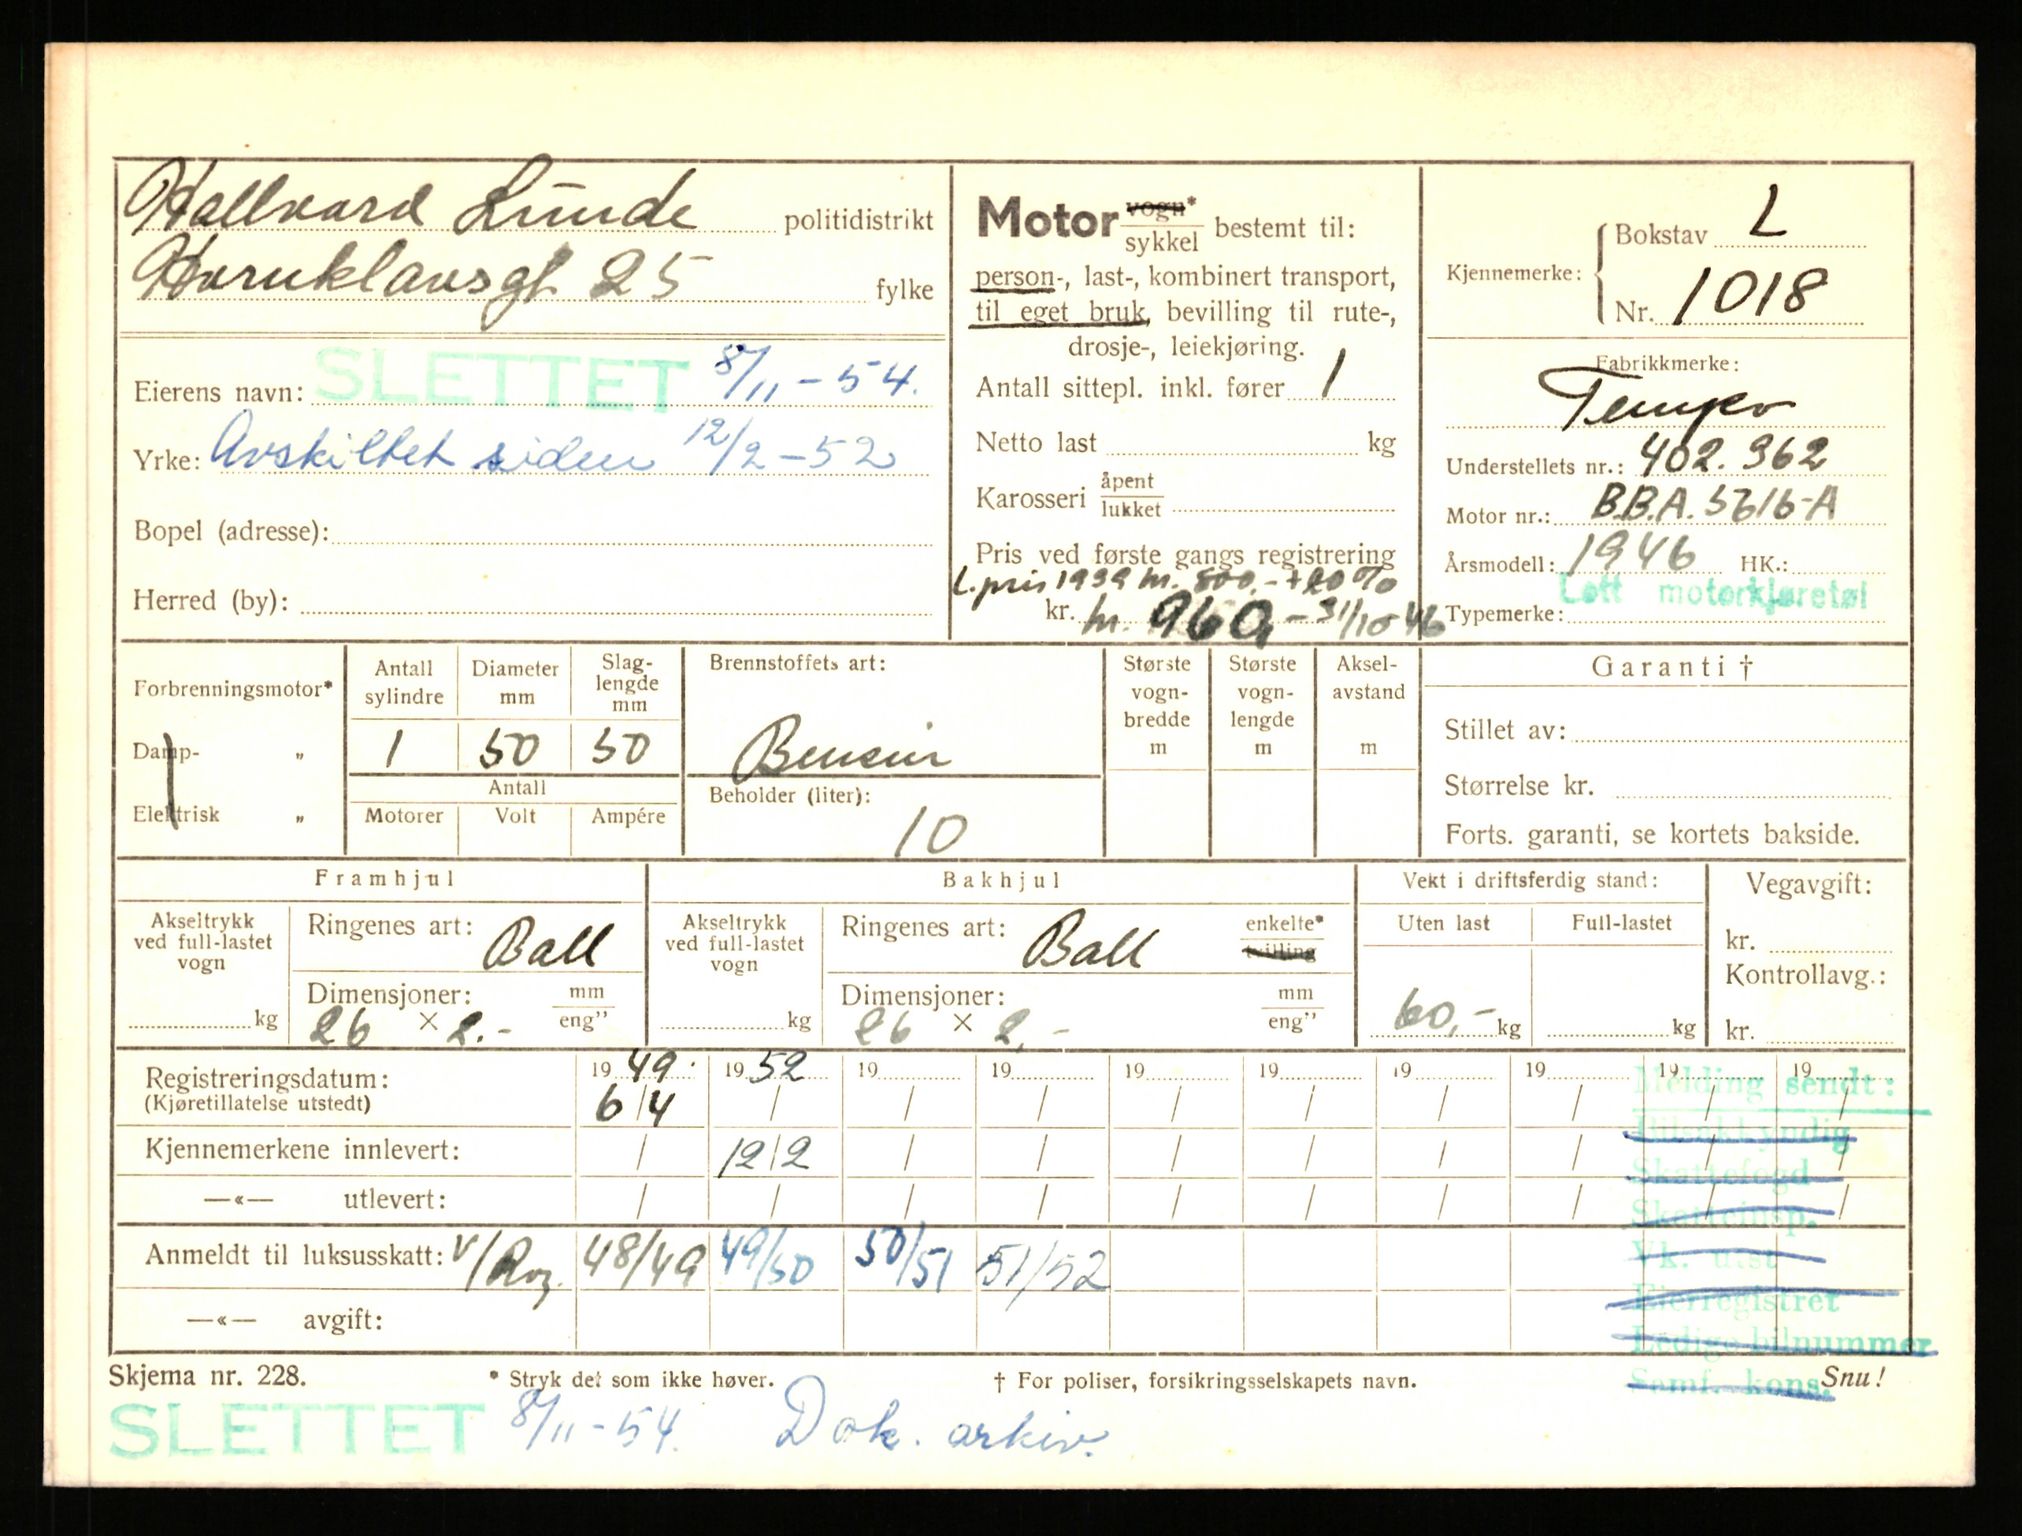 Hallvard Lunde politidistrikt
Hornklavsgt 25 fylke
Eierens navn: SLETTET 8/11-54.
Yrke: Avskiltet siden 12/2-52
Bopel (adresse):
Herred (by):
Motor vogn* sykkel bestemt til:
person-, last-, kombinert transport,
til eget bruk, bevilling til rute-,
drosje-, leiekjøring.
Antall sittepl. inkl. fører 1
Netto last kg
Karosseri åpent lukket
Pris ved første gangs registrering
L.pris 1939 kr. 800.- + 20%
kr. kr. 960,- 31/10-46
Kjennemerke: Bokstav L
Nr. 1018
Fabrikkmerke:
Tempo
Understellets nr.: 402.362
Motor nr.: B.B.A. 5616-A
Årsmodell: 1946 HK.:
Lett motorkjøretøi
Typemerke:
Forbrenningsmotor*
Damp- „
Elektrisk „
Antall sylindre Diameter mm Slag-lengde mm
1 50 50
Antall
Motorer Volt Ampére
Brennstoffets art:
Bensin
Beholder (liter):
10
Største vogn-bredde m
Største vogn-lengde m
Aksel-avstand m
Garanti †
Stillet av:
Størrelse kr.
Forts. garanti, se kortets bakside.
Framhjul
Akseltrykk ved full-lastet vogn kg
Ringenes art: Ball
Dimensjoner: mm eng”
26 × 2.-
Bakhjul
Akseltrykk ved full-lastet vogn kg
Ringenes art: Ball enkelte* tvilling
Dimensjoner: mm eng”
26 × 2,-
Vekt i driftsferdig stand:
Uten last Full-lastet
60,- kg kg
Vegavgift:
kr.
Kontrollavg.:
kr.
Registreringsdatum: 19 49. 19 52 19 19 19 19 19 19 19 19
(Kjøretillatelse utstedt) 6/4 / / / / / / / / /
Kjennemerkene innlevert: / 12/2 / / / / / / / /
—«— utlevert: / / / / / / / / / /
Anmeldt til luksusskatt: 48/49 49/50 50/51 51/52
—«— avgift:
Melding sendt:
Bilsakkyndig
Skattefogd
Skatteinsp.
Vk. utst
Eierregistret
Ledige bilnummer
Samf. kons.
Skjema nr. 228. * Stryk det som ikke høver. † For poliser, forsikringsselskapets navn. Snu!
SLETTET 8/11-54. Dok. arkiv.